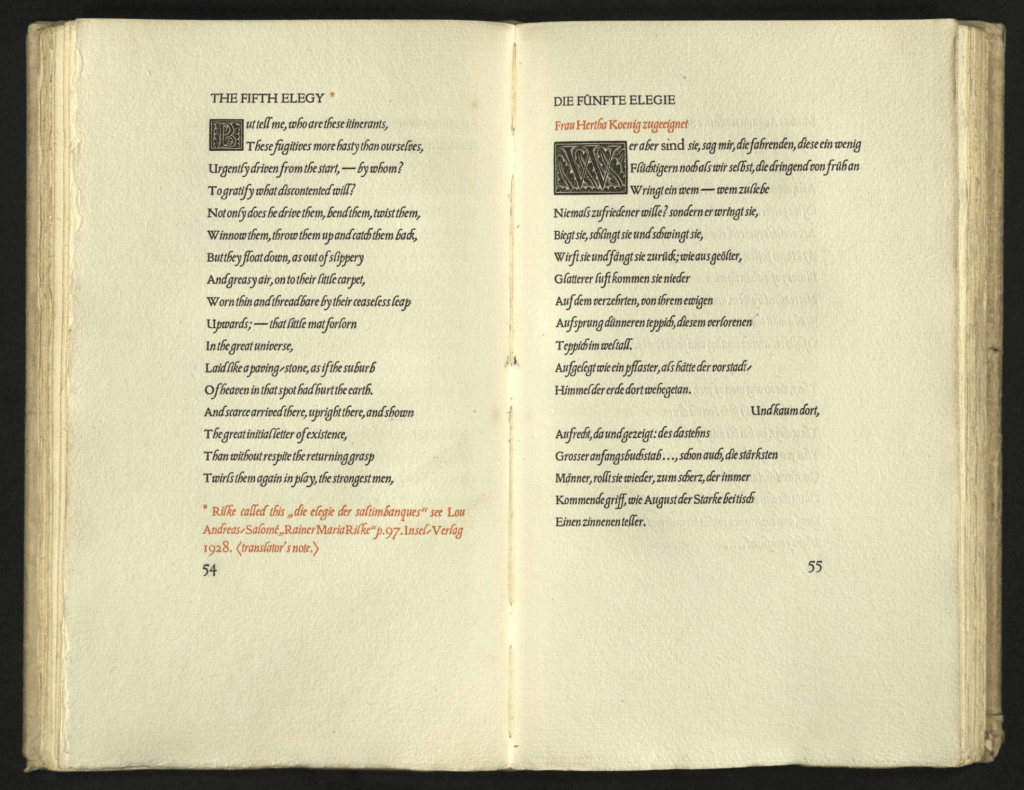 THE FIFTH ELEGY *
But tell me, who are these itinerants,
These fugitives more hasty than ourselves,
Urgently driven from the start, — by whom?
To gratify what discontented will?
Not only does he drive them, bend them, twist them,
Winnow them, throw them up and catch them back,
But they float down, as out of slippery
And greasy air, on to their little carpet,
Worn thin and threadbare by their ceaseless leap
Upwards; — that little mat forlorn
In the great universe,
Laid like a paving-stone, as if the suburb
Of heaven in that spot had hurt the earth.
And scarce arrived there, upright there, and shown
The great initial letter of existence,
Than without respite the returning grasp
Twirls them again in play, the strongest men,
* Rilke called this „die elegie der saltimbanques“ see Lou
Andreas-Salomé „Rainer Maria Rilke“ p. 97. Insel-Verlag
1928. (translator's note.)
54
DIE FÜNFTE ELEGIE
Frau Hertha Koenig zugeeignet
Wer aber sind sie, sag mir, die fahrenden, diese ein wenig
Flüchtigern noch als wir selbst, die dringend von früh an
Wringt ein wem — wem zu liebe
Niemals zufriedener wille? sondern er wringt sie,
Biegt sie, schlingt sie und schwingt sie,
Wirft sie und fängt sie zurück; wie aus geölter,
Glatterer luft kommen sie nieder
Auf dem verzehrten, von ihrem ewigen
Aufsprung dünneren teppich, diesem verlorenen
Teppich im weltall.
Aufgelegt wie ein pflaster, als hätte der vorstadt-
Himmel der erde dort wehe getan.
Und kaum dort,
Aufrecht, da und gezeigt: des dastehns
Grosser anfangsbuchstab ..., schon auch, die stärksten
Männer, rollt sie wieder, zum scherz, der immer
Kommende griff, wie August der Starke bei tisch
Einen zinnenen teller.
55